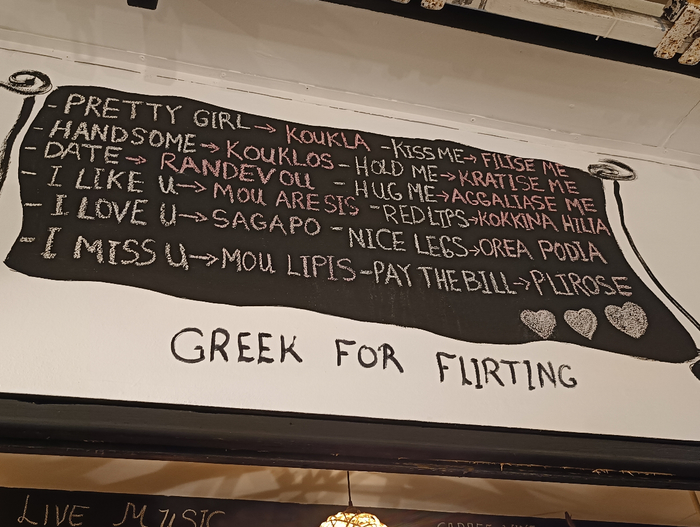 - PRETTY GIRL → KOUKLA - KISS ME → FILISE ME
- HANDSOME → KOUKLOS - HOLD ME → KRATISE ME
- DATE → RANDEVOU - HUG ME → AGGALIASE ME
- I LIKE U → MOU ARESIS - RED LIPS → KOKKINA HILIA
- I LOVE U → SAGAPO - NICE LEGS → OREA PODIA
- I MISS U → MOU LIPIS - PAY THE BILL → PLIROSE
GREEK FOR FLIRTING
LIVE MUSIC